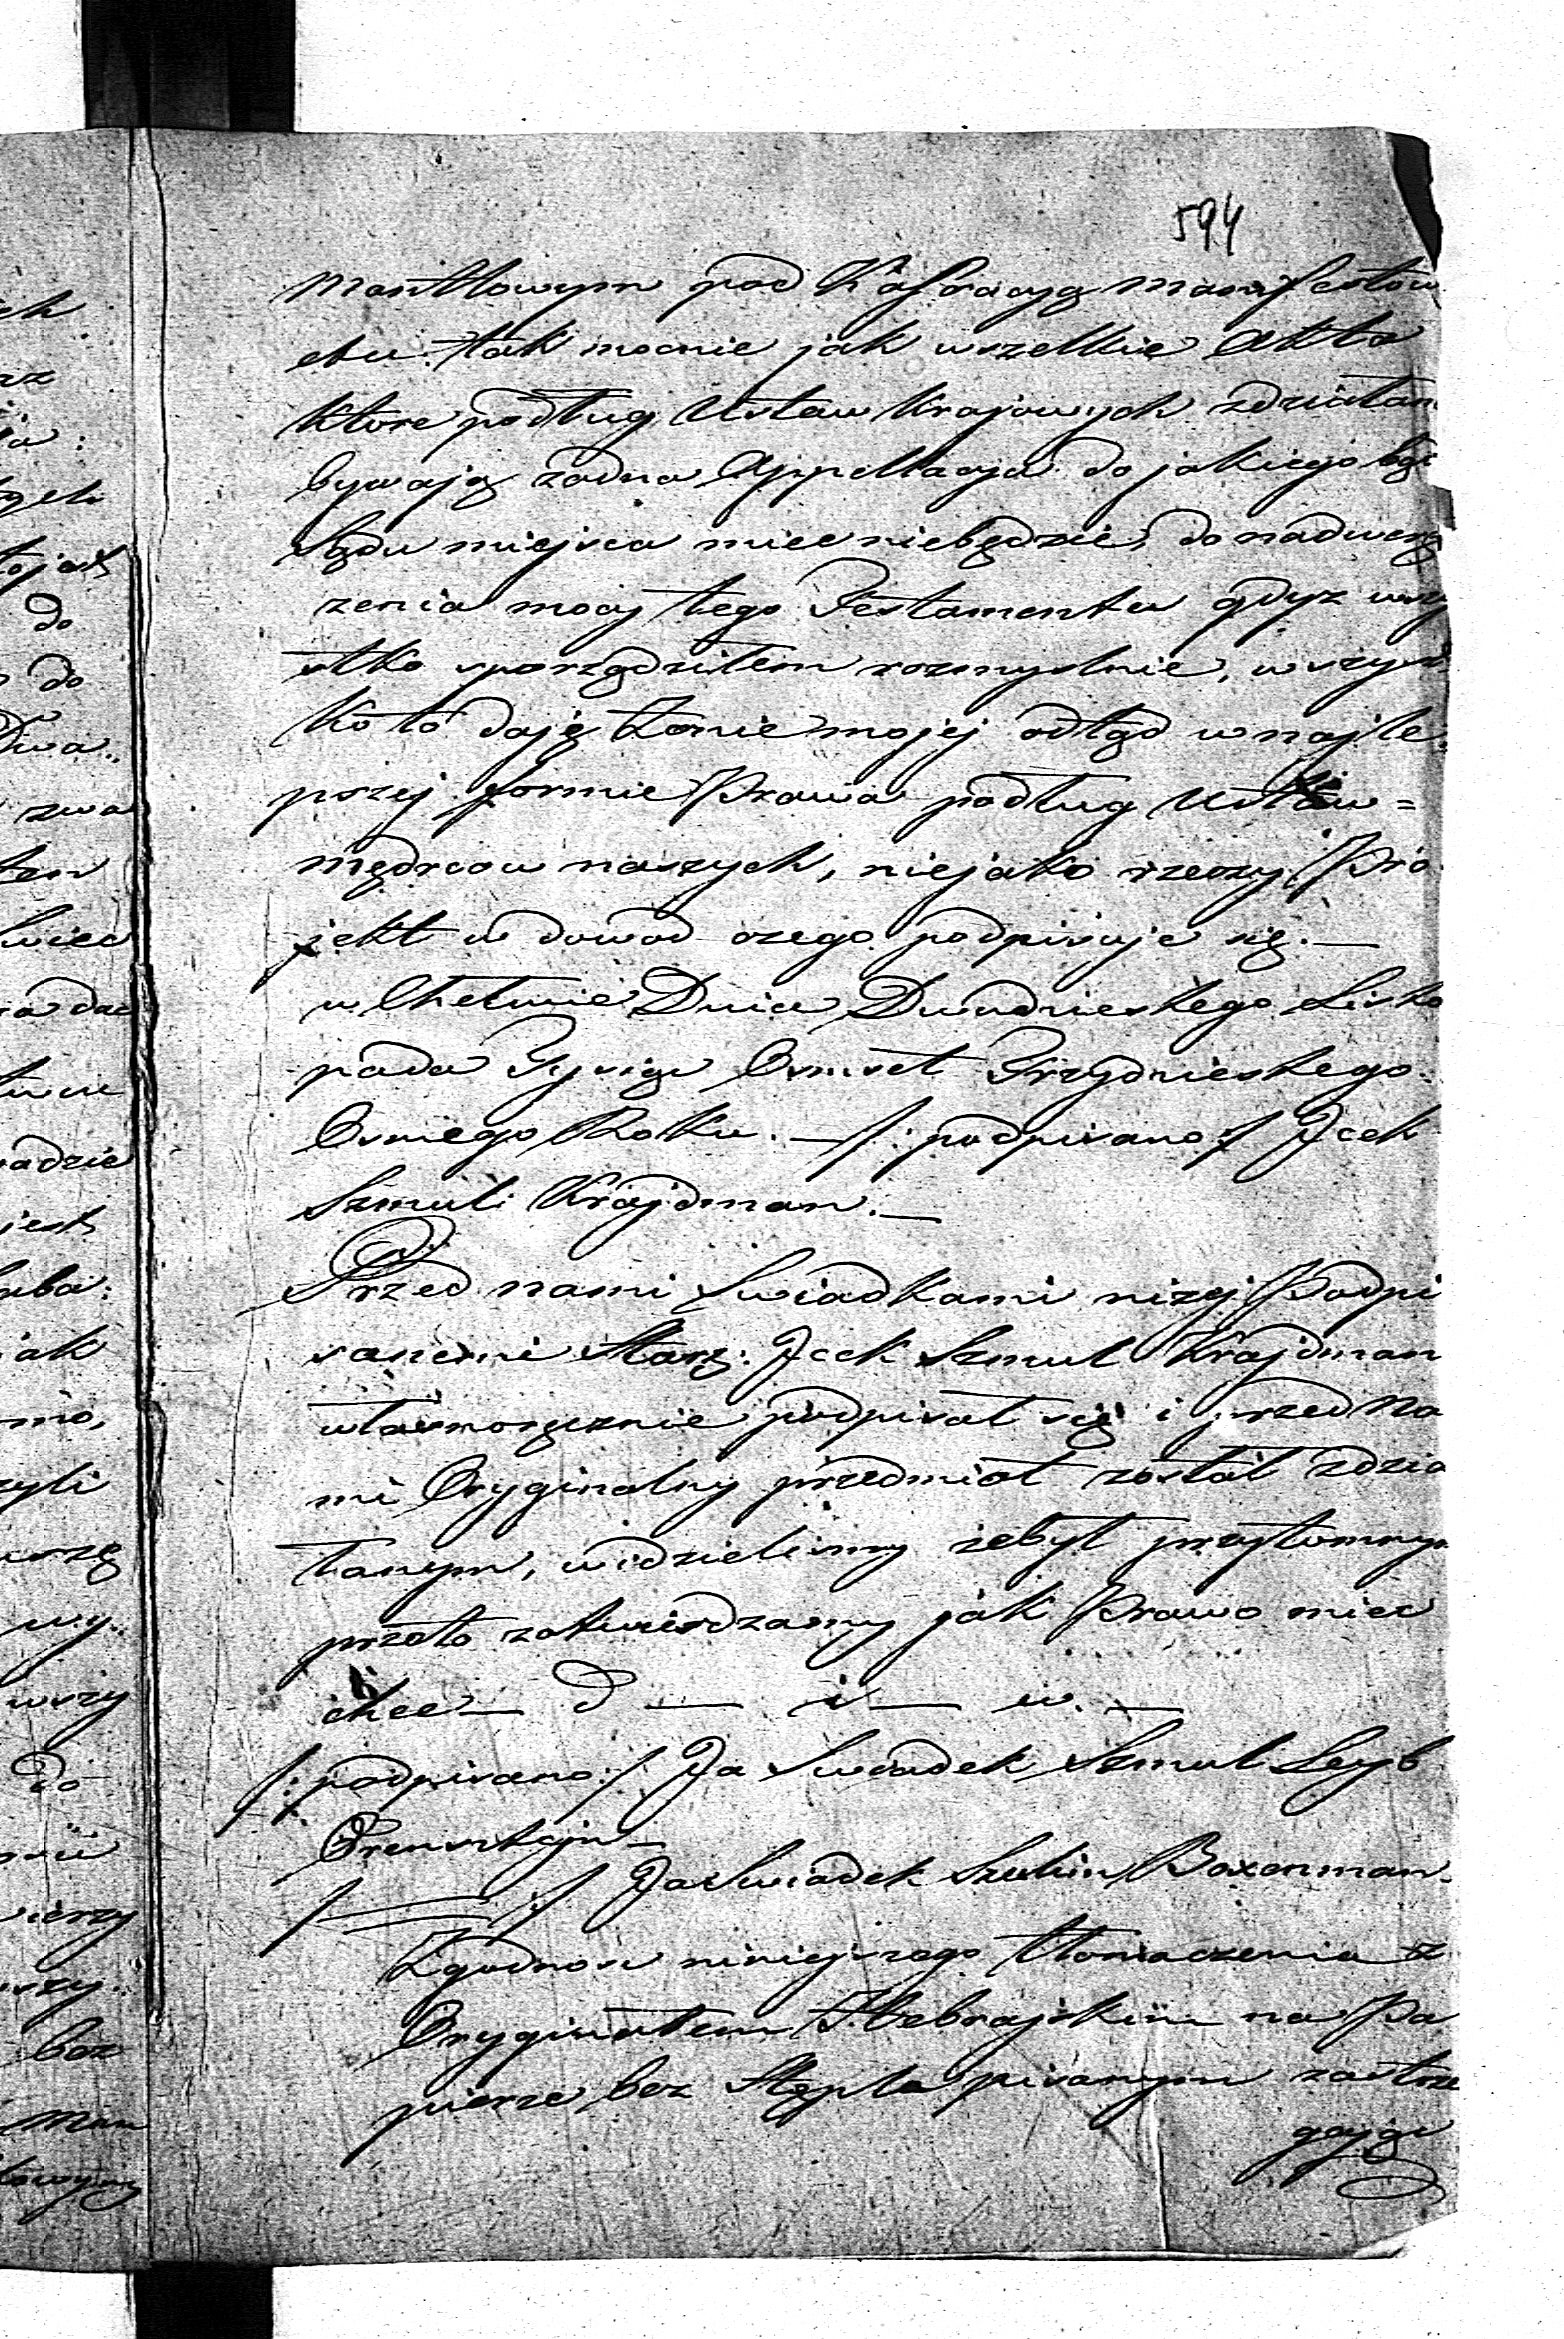 594
mentlowym pod Kassacyą manifestow
etu. tak mocnie jak wszelkie Akta
Ktore podług Ustaw Krajowych zdziałan
bywają zadna Appellacya do jakiego bąć
Sądu miejsca miec niebędzie, do nadwerę
zenia mocy tego Testamentu gdyz wszy
stko sporządziłem rozmyslnie, wszyst
ko to daję Zonie mojej odtąd w najle
pszej formie Prawa podług Ustaw =
mędrcow naszych, niejako rzeczy Pro
jekt w dowod czego podpisuje się. —
w Chełmie Dnia Dwudziestego Listo
pada Tysiąc Osmset Trzydziestego
Osmego Roku. — /: podpisano :/ Jcek
Szmul Krajdman. —
Przed nami Swiadkami nizej Podpi
sanemi Starz: Jcek Szmul Krajdman
własnoręcznie podpisał się i przed Na
mi Oryginalny przedmiot został zdzia
łanym, widzielismy ze był przytomnym
przeto zatwierdzamy jak Prawo miec
chce — d — i — w. —
/: podpisano :/ Ja Swiadek Szmul Leyb
Orensztejn —
/: — :/ Ja Swiadek Szulim Boxenman.
Zgodnosc niniejszego tłomaczenia z
Oryginałem Hebrajskim na Pa
pierze bez Stępla pisanym zastrze
gając